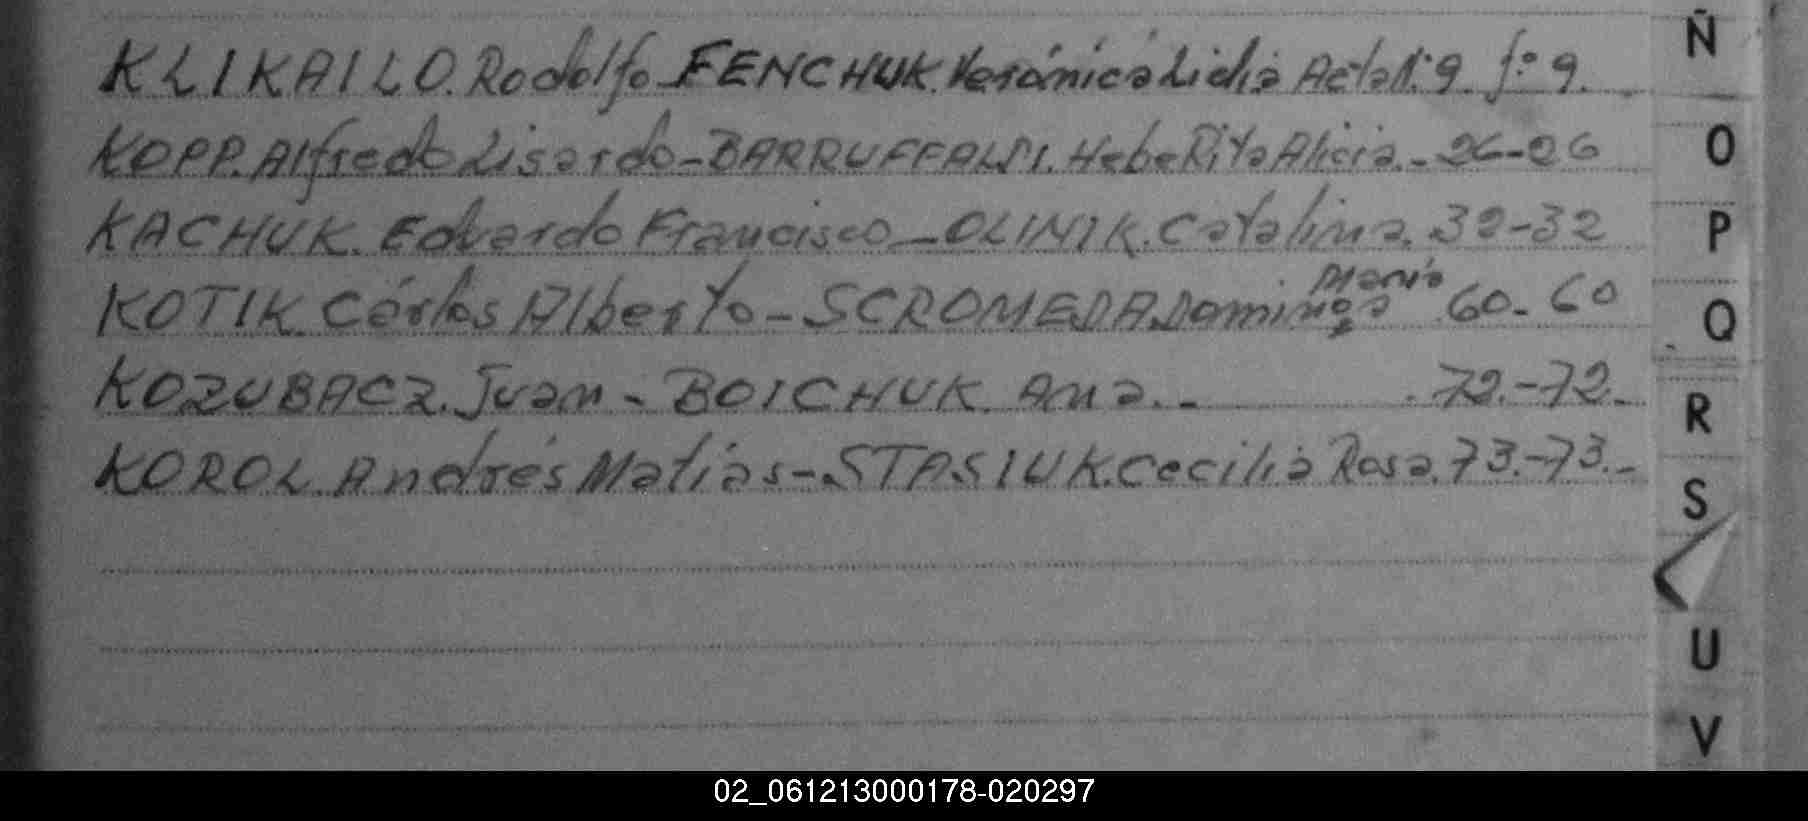 KLIKAILO. Rodolfo FENCHUK. Verónica Lidia Acta N° 9. f° 9.
KOPP. Alfredo Lisardo - BARRUFFALDI. Hebe Rita Alicia. - 26-26
KACHUK. Eduardo Francisco - OLINIK. Catalina. 32-32
María
KOTIK. Cárlos Alberto - SCROMEDA Dominga 60-60
KOZUBACZ. Juan - BOICHUK. Ana. - . 72.-72.
KOROL. Andrés Matias - STASIUK. Cecilia Rosa. 73.-73.-
Ñ
O
P
Q
R
S
U
V
02_061213000178-020297